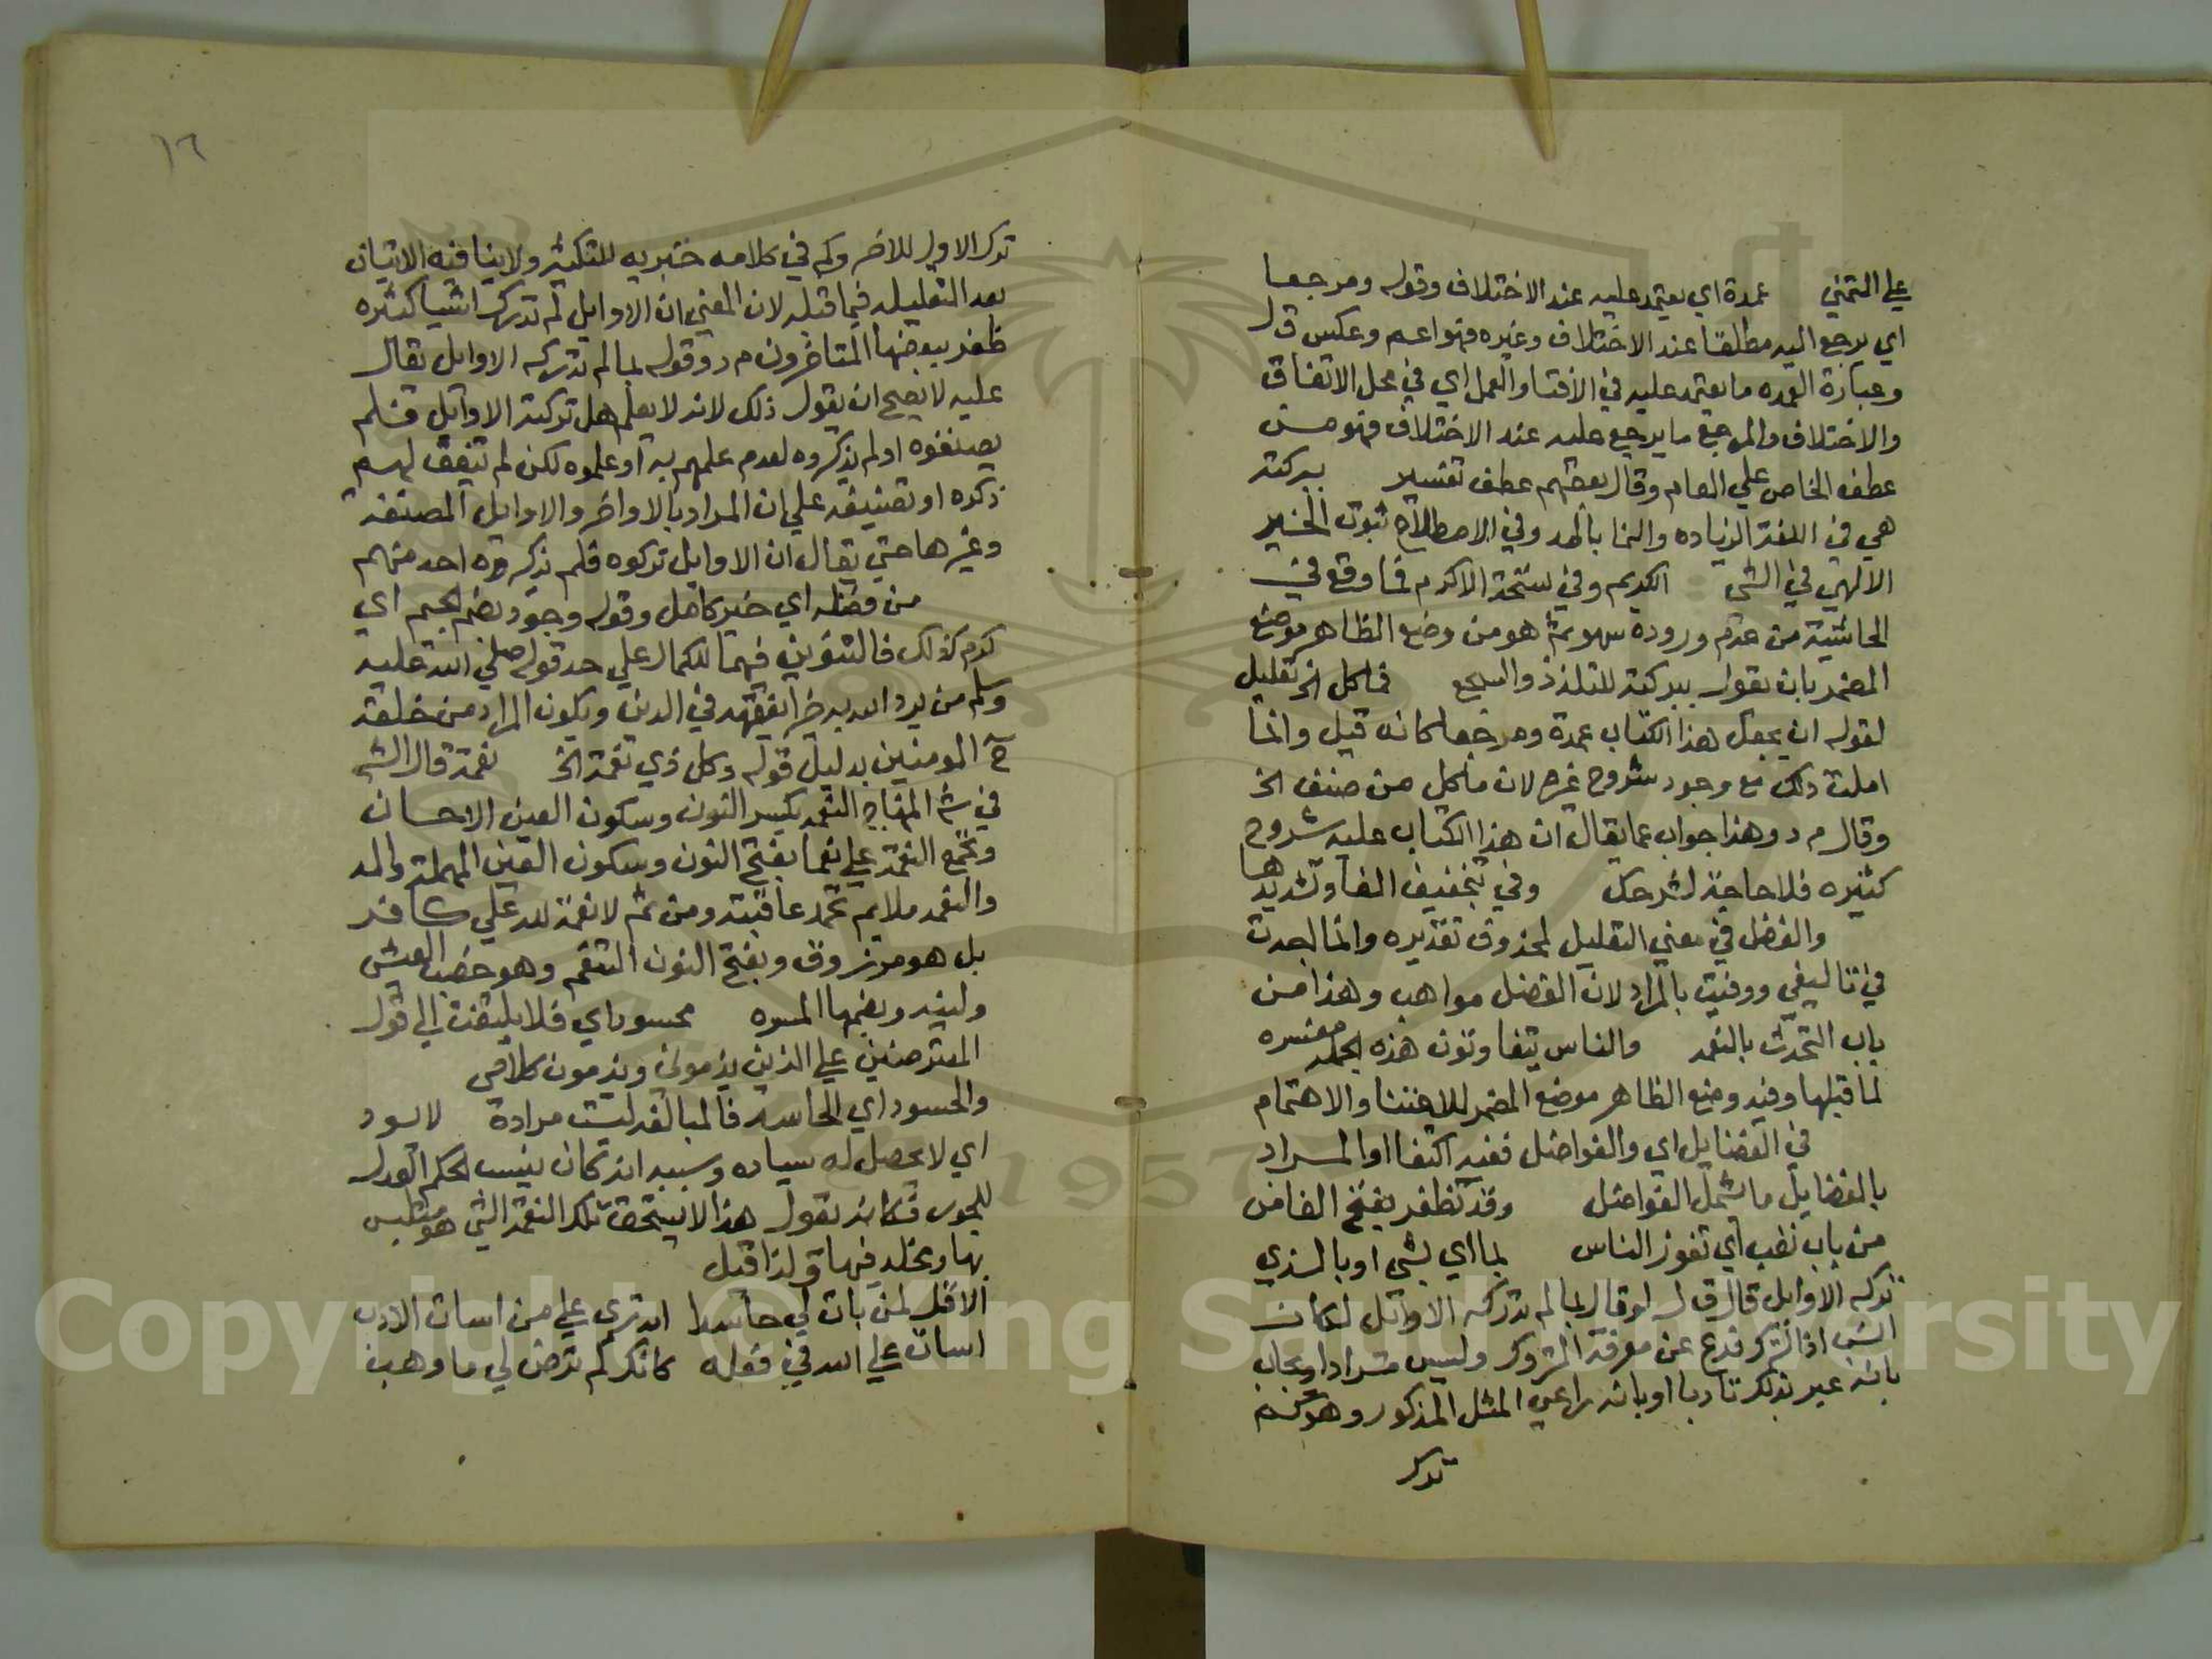 علي التمني عمدة اي يعتمد عليه عند الاختلاف وقوله ومرجعا
اي يرجع اليه مطلقا عند الاختلاف وغيره فهو اعم وعكس ق ل
وعبارة العمده ما يعتمد عليه في الافتا والعمل اي في محل الاتفاق
والاختلاف والمرجع ما يرجع عليه عند الاختلاف فهو من
عطف الخاص علي العام وقال بعضهم عطف تفسير ببركته
هي في اللغة الزياده والنما بالمد وفي الاصطلاح ثبوت الخير
الالهي في الشي الكريم وفي نسخة الاكرم فما وقع في
الحاشية من عدم وروده سهو ثم هو من وضع الظاهر موضع
المضمر بان يقول ببركته للتلذذ والسجع فما كل الخ تعليل
لقوله ان يجعل هذا الكتاب عمدة ومرجعا كانه قيل وانما
املت ذلك مع وجود شروح غيره لان ما كل من صنف الخ
وقال م د وهذا جواب عما يقال ان هذا الكتاب عليه شروح
كثيره فلا حاجة لشرحك وفي بتخفيف الفا وتشديدها
والفضل في معني التعليل لمحذوف تقديره وانما اجدت
في تاليفي ووفيت بالمراد لان الفضل مواهب وهذا من
باب التحدث بالنعمه والناس يتفاوتون هذه الجملة مفسره
لما قبلها وفيه وضع الظاهر موضع المضمر للاعتنا والاهتمام
في الفضايل اي والفواضل ففيه اكتفا او المراد
بالفضايل ما يشمل الفواضل وقد تظفر بفتح الفا من
من باب تعب اي تفوز الناس بما اي بشي او بالذي
تركه الاوايل قال ق ل لو قال بما لم تدركه الاوائل لكان
انسب اذ الترك فرع عن معرفة المتروك وليس مرادا ويجاب
بانه عبر بذلك تادبا او بانه راعي المثل المذكور وهو كم
ترك
١٦
ترك الاول للاخر وكم في كلامه خبريه للتكثير ولا ينافيه الاتيان
بعد التقليل فيما قبله لان المعني ان الاوايل لم تدرك اشيا كثيره
ظفر ببعضها المتاخرون م د وقوله بما لم تدركه الاوايل يقال
عليه لا يصح ان يقول ذلك لانه لا يعلم هل تركته الاوايل فلم
يصنفوه او لم يذكروه لعدم علمهم به او علموه لكن لم يتفق لهم
ذكره او تصنيفه علي ان المراد بالاواخر والاوايل المصنفة
وغيرها حتي يقال ان الاوايل تركوه فلم يذكره احد منهم
من فضله اي خير كامل وقوله وجود بضم الجيم اي
كرم كذلك فالتنوين فيهما للكمال علي حد قوله صلي الله عليه
وسلم من يرد الله به خيرا يفقهه في الدين ويكون المراد من خلقه
ح المومنين بدليل قوله وكل ذي نعمة الخ نعمة قال الش
في ش المنهاج النعمه بكسر النون وسكون العين الاحسان
وتجمع النعمة علي نعما بفتح النون وسكون العين المهملة والمد
والنعمه ملايم تحمد عاقبته ومن ثم لا نعمة لله علي كافر
بل هو مرزوق وبفتح النون التنعم وهو خفض العيش
ولينه وبضمها المسره محسود اي فلا يلتفت الي قول
المعترضين علي الذين يذموني ويذمون كلامي
والحسود اي الحاسد فالمبالغه ليست مرادة لا يسود
اي لا يحصل له سياده وسببه انه كان ينسب الحكم العدل
للجور فكانه يقول هذا لا يستحق تلك النعمة التي هو متلبس
بها ويخلد فيها ولذا قيل
الا قل لمن بات لي حاسدا اتدري علي من اسات الادب
اسات علي الله في فعله كانك لم ترض لي ما وهب